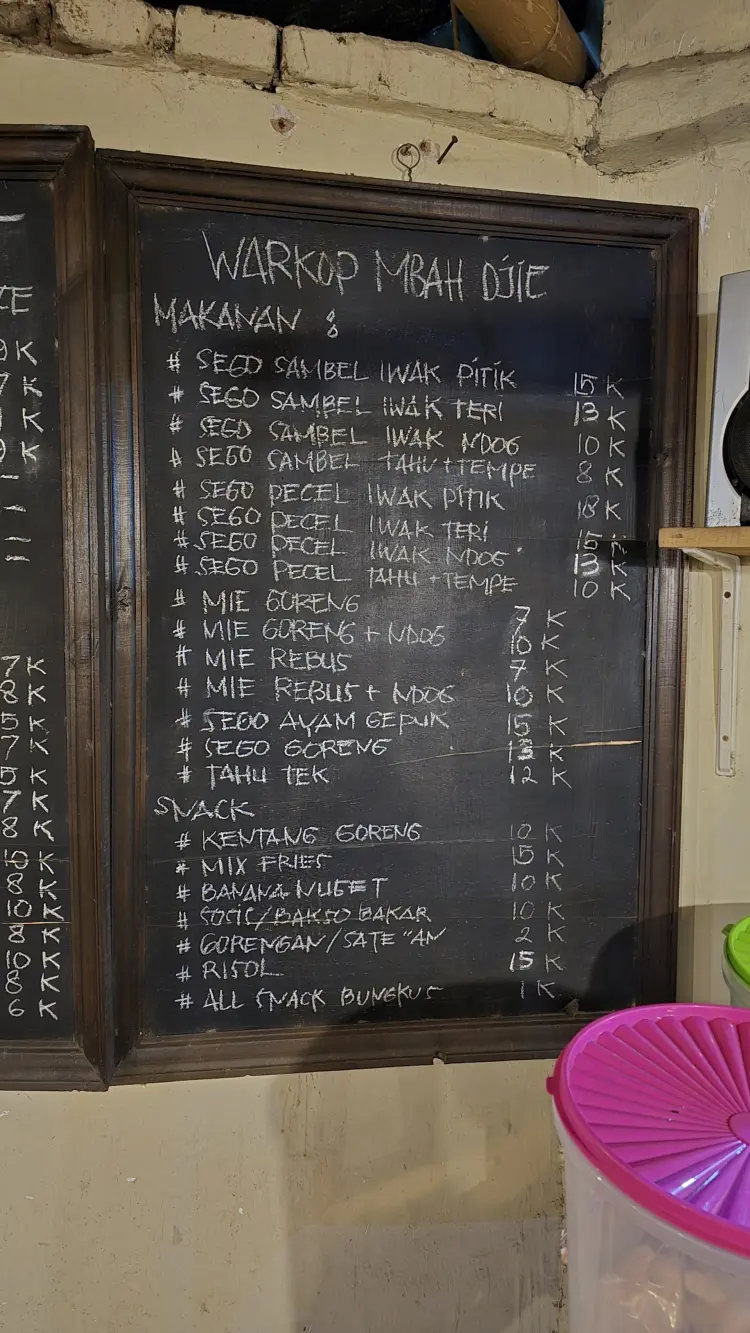 ZE
9K
7 K
K
9 K
7 K
8 K
5 K
7 K
5 K
7 K
8 K
10 K
8 K
10 K
8 K
10 K
8 K
6 K
WARKOP MBAH DJIE
MAKANAN :
# SEGO SAMBEL IWAK PITIK 15 K
# SEGO SAMBEL IWAK TERI 13 K
# SEGO SAMBEL IWAK NDOG 10 K
# SEGO SAMBEL TAHU + TEMPE 8 K
# SEGO PECEL IWAK PITIK 18 K
# SEGO PECEL IWAK TERI 15 K
# SEGO PECEL IWAK NDOG 13 K
# SEGO PECEL TAHU + TEMPE 10 K
# MIE GORENG 7 K
# MIE GORENG + NDOG 10 K
# MIE REBUS 7 K
# MIE REBUS + NDOG 10 K
# SEGO AYAM GEPUK 15 K
# SEGO GORENG 13 K
# TAHU TEK 12 K
SNACK
# KENTANG GORENG 10 K
# MIX FRIES 15 K
# BANANA NUGET 10 K
# SOCIS/BAKSO BAKAR 10 K
# GORENGAN/SATE "AN 2 K
# RISOL 15 K
# ALL SNACK BUNGKUS 1 K